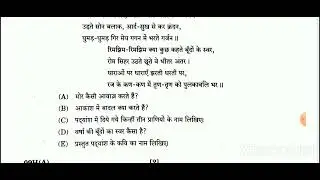 उड़ते सोन बलाक, आर्द-सुख से कर क्रंदन,
घुमड़-घुमड़ गिर मेघ गगन में भरते गर्जन॥
रिमझिम-रिमझिम क्या कुछ कहते बूँदों के स्वर,
रोम सिहर उठते छूते वे भीतर अंतर।
धाराओं पर धाराएँ झरतीं धरती पर,
रज के कण-कण में तृण-तृण को पुलकावलि भर॥
(A) मोर कैसी आवाज़ करते हैं?
(B) आकाश में बादल क्या करते हैं?
(C) पद्यांश में दिये गये किन्हीं तीन प्राणियों के नाम लिखिए।
(D) वर्षा की बूँदों का स्वर कैसा है?
(E) प्रस्तुत पद्यांश के कवि का नाम लिखिए।
09H(A)
[2]